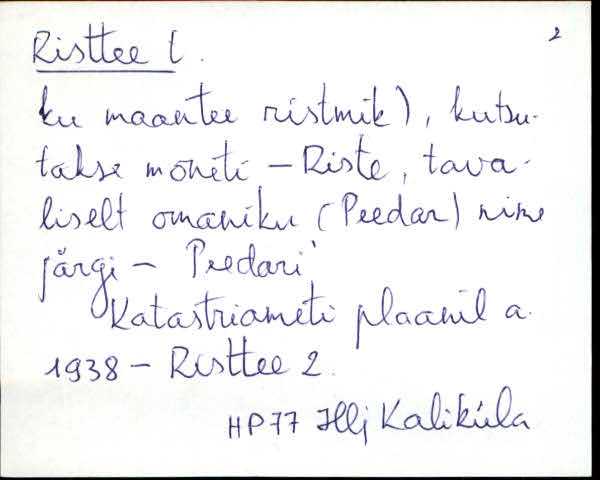 Risttee l. 2
ku maantee ristmik), kutsu-
takse mõneti – Riste, tava-
liselt omaniku (Peedar) nime
järgi – Peedari
Katastriameti plaanil a.
1938 – Risttee 2.
HP77 Hlj Kaliküla